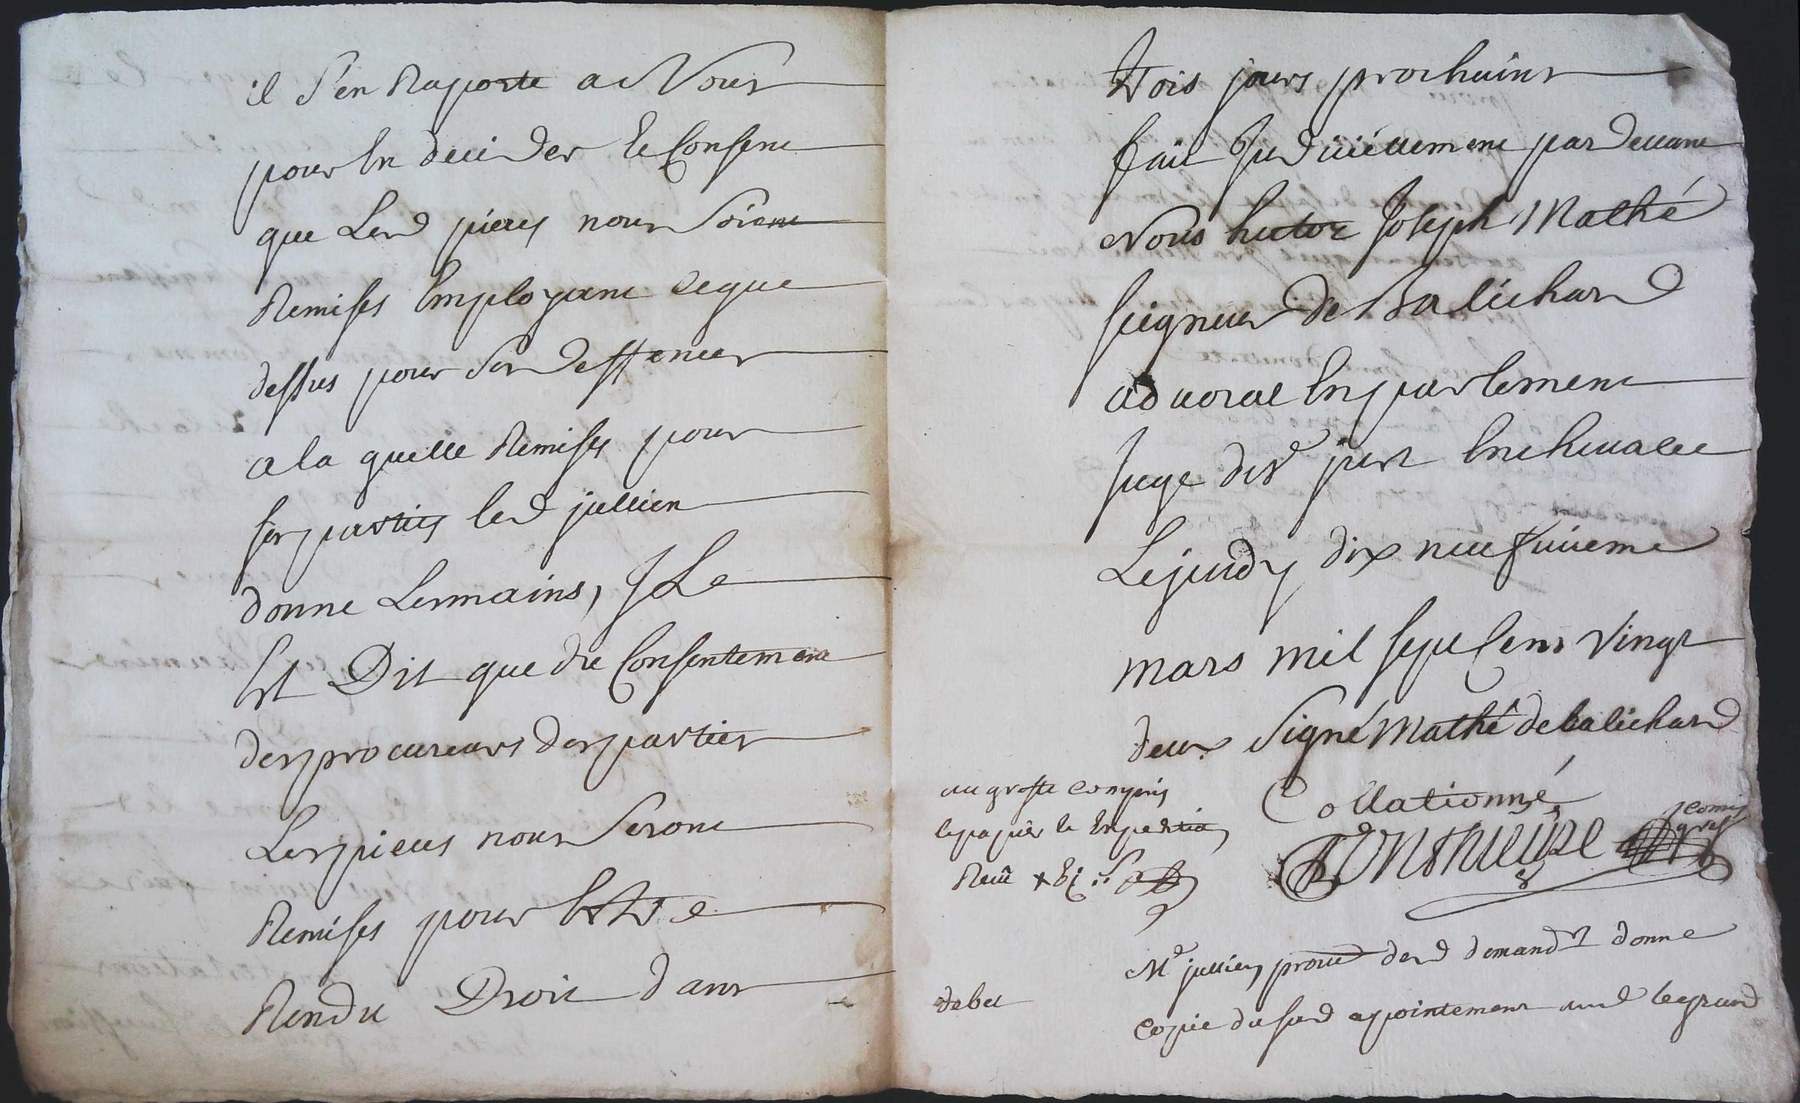 il s'en Raporte a Vous
pour En decider Et Consent
que Lesd pieces nous Soient
Remises Employant ce que
dessus pour Ses deffences
a la quelle Remises pour
ses parties led jullien
donne Les mains, Il
Est Dit que du Consentement
des procureurs des parties
Les pieces nous Seront
Remises pour Estre
Rendu Droit dans
trois jours prochains
fait Judiciellement par devant
Nous hector Joseph Mathé
seigneur de Balichard
advocat En parlement
Juge
Le jeudy dix neufviieme
mars mil sept Cens vingt
deux Signé Mathé de balichard
Collationné
comis
gref
au greffe compris
le papier le Expedition
Receu
Me jullien demandr donne
debet
copie du sud appointement aud legrand